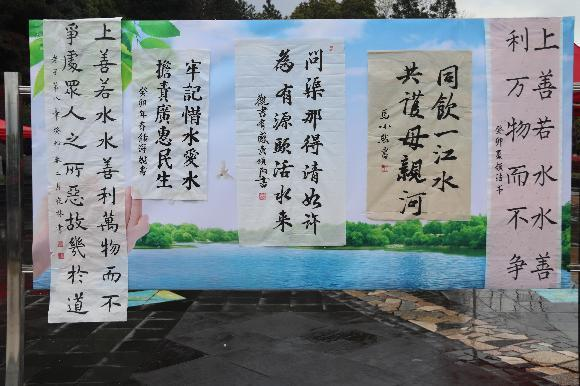 上善若水水善
利万物而不争
癸卯
同飲一江水
共護母親河
馬小
問渠那得清如许
為有源頭活水来
觀書有感
牢記惜水愛水
擔責廣惠民生
癸卯年
上善若水水善利萬物而不
爭處眾人之所惡故幾於道
老子第八章癸卯